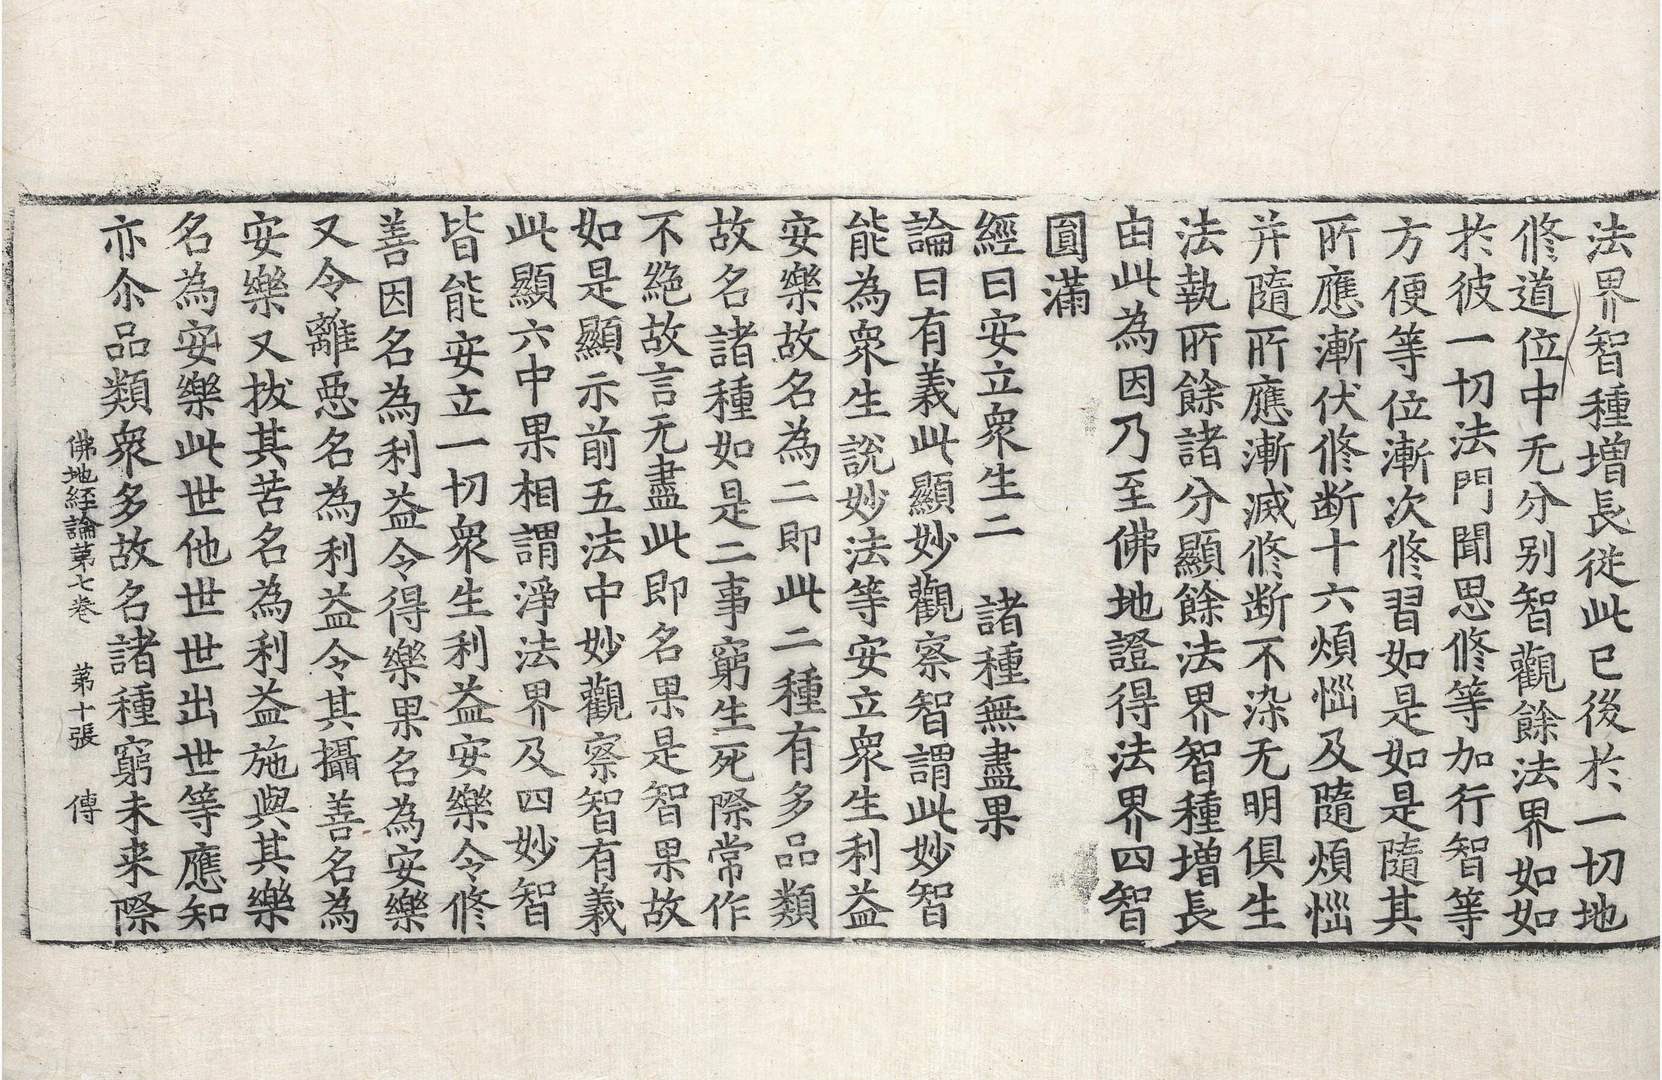 法界智種增長從此已後於一切地
修道位中无分别智觀餘法界如如
於彼一切法門聞思修等加行智等
方便等位漸次修習如是如是隨其
所應漸伏修断十六煩惱及隨煩惱
并隨所應漸滅修断不染无明俱生
法執所餘諸分顯餘法界智種增長
由此為因乃至佛地證得法界四智
圓滿
經曰安立衆生二　諸種無盡果
論曰有義此顯妙觀察智謂此妙智
能為衆生說妙法等安立衆生利益
安樂故名為二即此二種有多品類
故名諸種如是二事窮生死際常作
不絶故言无盡此即名果是智果故
如是顯示前五法中妙觀察智有義
此顯六中果相謂淨法界及四妙智
皆能安立一切衆生利益安樂令修
善因名為利益令得樂果名為安樂
又令離惡名為利益令其攝善名為
安樂又拔其苦名為利益施與其樂
名為安樂此世他世世出世等應知
亦尒品類衆多故名諸種窮未来際
佛地経論苐七卷　苐十張　傳